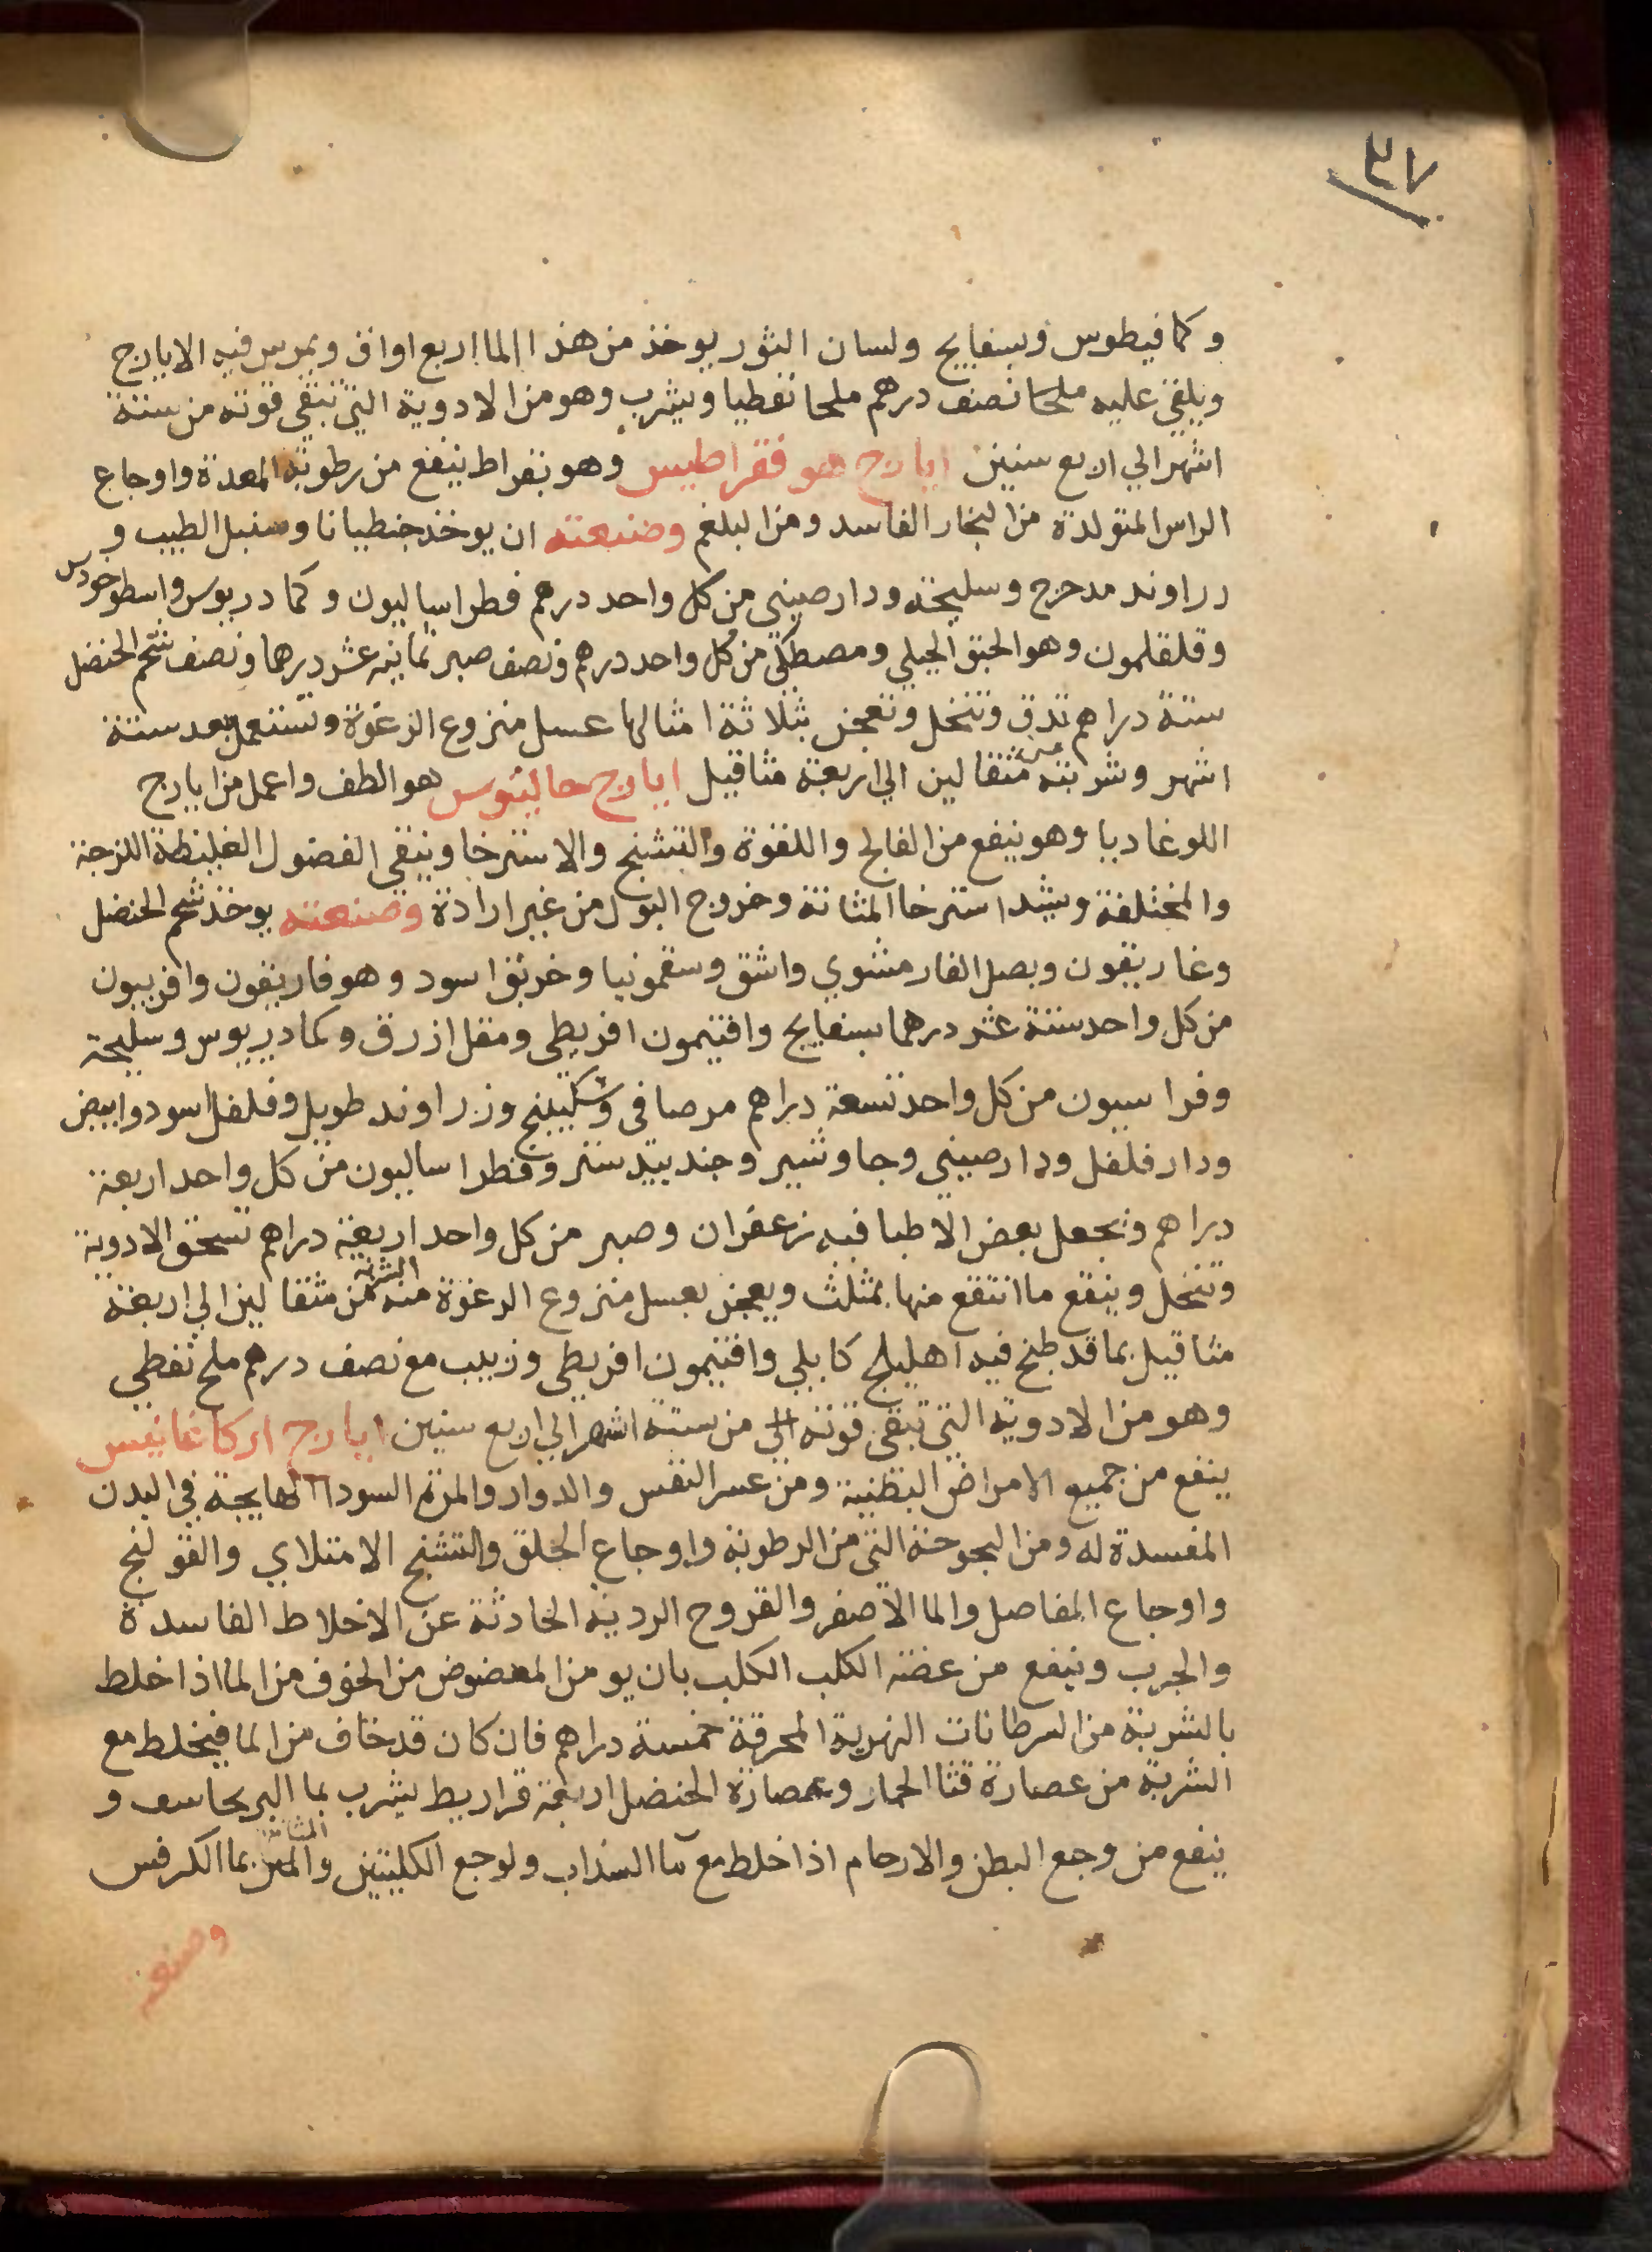 ٤٧
وكمافيطوس وبسفايج ولسان الثور يوخذ من هذا الما اربع اواق ويمرس فيه الايارج
ويلقي عليه ملحا نصف درهم ملحا نفطيا ويشرب وهو من الادوية التي تبقي قوته من ستة
اشهر الي اربع سنين ايارج هو فقراطيس وهو بقراط ينفع من رطوبة المعدة واوجاع
الراس المتولدة من البخار الفاسد ومن البلغم وصنعته ان يوخذ جنطيانا وسنبل الطيب و
زراوند مدحرج وسليخه ودارصيني من كل واحد درهم فطراساليون وكمادريوس واسطوخودس
وقلقلمون وهو الحبق الجبلي ومصطكي من كل واحد درهم ونصف صبر ثمانيه عشر درهما ونصف شحم الحنضل
ستة دراهم تدق وتنخل وتعجن بثلاثة امثالها عسل منزوع الرغوة وتستعمل بعد ستة
اشهر وشربته من مثقالين الي اربعة مثاقيل ايارج جالينوس هو الطف واعمل من ايارج
اللوغاديا وهو ينفع من الفالج واللقوة والتشنج والاسترخا وينقي الفضول الغليظة اللزجة
والمختلفة ويشد استرخا المثانة وخروج البول من غير ارادة وصنعته يوخذ شحم الحنضل
وغاريقون وبصل الفار مشوي واشق وسقمونيا وخربق اسود وهوفاريقون وافربيون
من كل واحد ستة عشر درهما بسفايج وافتيمون اقريطي ومقل ازرق وكمادريوس وسليخة
وفراسيون من كل واحد تسعة دراهم مر صافي وسكبينج وزراوند طويل وفلفل اسود وابيض
ودارفلفل ودارصيني وجاوشير وجندبيدستر وفطراساليون من كل واحد اربعة
دراهم ويجعل بعض الاطبا فيه زعفران وصبر من كل واحد اربعة دراهم تسحق الادوية
وتنخل وينقع ما انتقع منها بمثلث ويعجن بعسل منزوع الرغوة الشربة منه من مثقالين الي اربعة
مثاقيل بما قد طبخ فيه اهليلج كابلي وافتيمون اقريطي وزبيب مع نصف درهم ملح نفطي
وهو من الادوية التي تبقي قوته الي من ستة اشهر الي اربع سنين ايارج اركاغانيس
ينفع من جميع الامراض البطنية ومن عسر النفس والدوار والمرة السودا الهايجة في البدن
المفسدة له ومن البحوحة التي من الرطوبة واوجاع الحلق والتشنج الامتلاي والقولنج
واوجاع المفاصل والما الاصفر والقروح الردية الحادثة عن الاخلاط الفاسدة
والجرب وينفع من عضة الكلب الكلب بان يومن المعضوض من الخوف من الما اذا خلط
بالشربة من السرطانات النهرية المحرقة خمسة دراهم فان كان قد خاف من الما فيخلط مع
الشربة من عصارة قثا الحمار وعصارة الحنضل اربعة قراريط يشرب بما البرنجاسف و
ينفع من وجع البطن والارحام اذا خلط مع ما السذاب ولوجع الكليتين والمثانة بما الكرفس
وصنعته